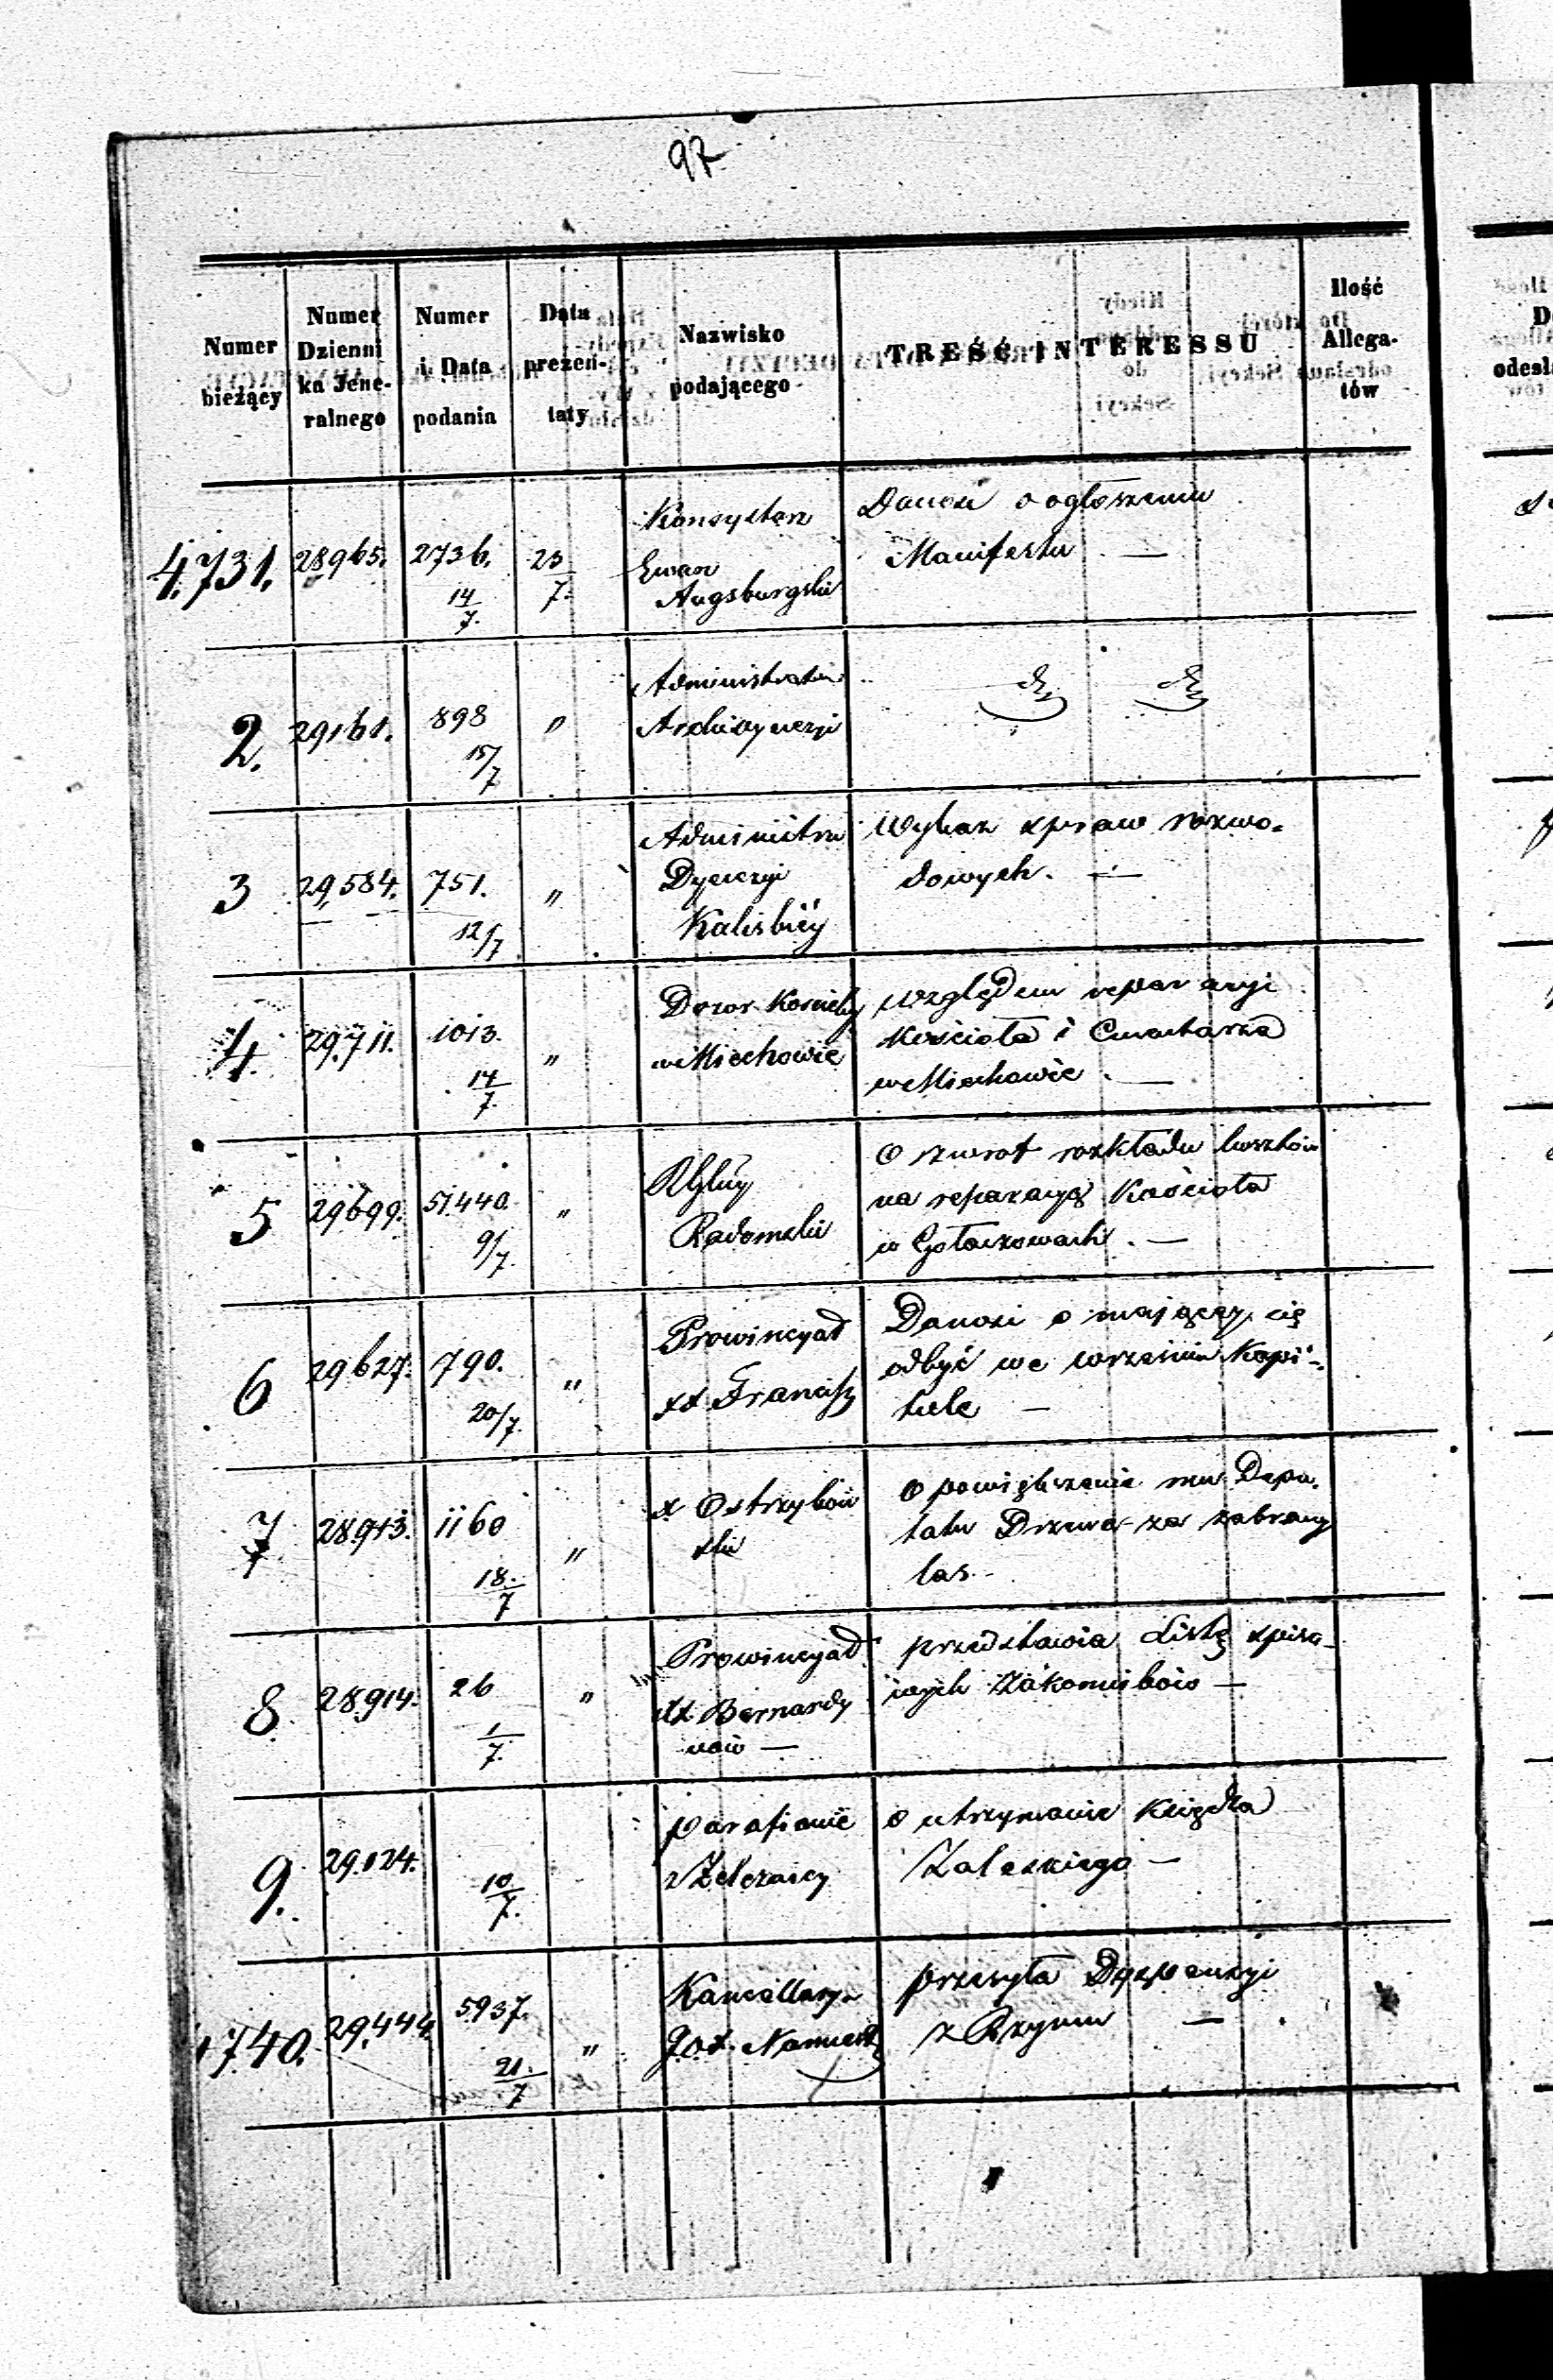 97
Numer bieżący
Numer Dzienni ka Jene- ralnego
Numer i Data podania
Data prezen- taty
Nazwisko podającego
TREŚĆ INTERESSU
Ilość Allega- tów
4.731. 28965. 2736. 14/7. 23/7.
Konsystorz
Ewan
Augsburgski
Donosi o ogłoszeniu
Manifestu —
2. 29161. 898 15/7 "
Administrator
Archidyecezyi
3 29,584. 751. 12/7 "
Administra
Dyecezyi
Kaliskiéy
Wykaz spraw rozwo-
dowych. —
4. 29.711. 1013. 14/7. "
Dozor Kościelny
w Miechowie
względem reparacyi
Kościoła i Cmentarza
w Miechowie. —
5 29699. 51.440. 9/7. "
Radomski
O zwrot rozkładu kosztów
na reparacyą Kościoła
w . —
6 29627. 790. 20/7. "
Prowincyał
xx Francisz
Donosi o mającey się
odbyć we wrześniu Kapi-
tule —
7 28.913. 1160 18./7 "
x Ostrzykow
ski
O powiększenie mu Depu-
tatu Drzewa za zabrany
las.
8. 28.914. 26 1/7. "
Prowincyał
xx Bernardy
nów —
przedstawia Listę spiso-
wych Zakonników —
9. 29.124. 10/7.
parafianie
o utrzymanie Księdza
Zaleskiego —
4740. 29.444. 5937. 21./7 "
Kancellarya
Namiest
przesyła Dyspensyi
z Rzymu —